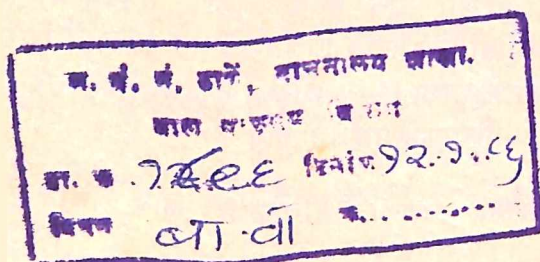 म. ग्रं. सं. ठाणें, वाचनालय शाखा.
बाल वाङ्मय विभाग
दा. क्र. दिनांक १२.१.
विषय बा.वा क्र..........